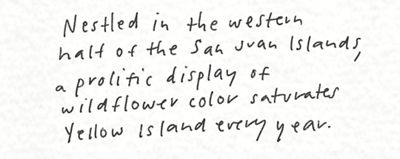 Nestled in the western
half of the San Juan Islands,
a prolific display of
wildflower color saturates
Yellow Island every year.